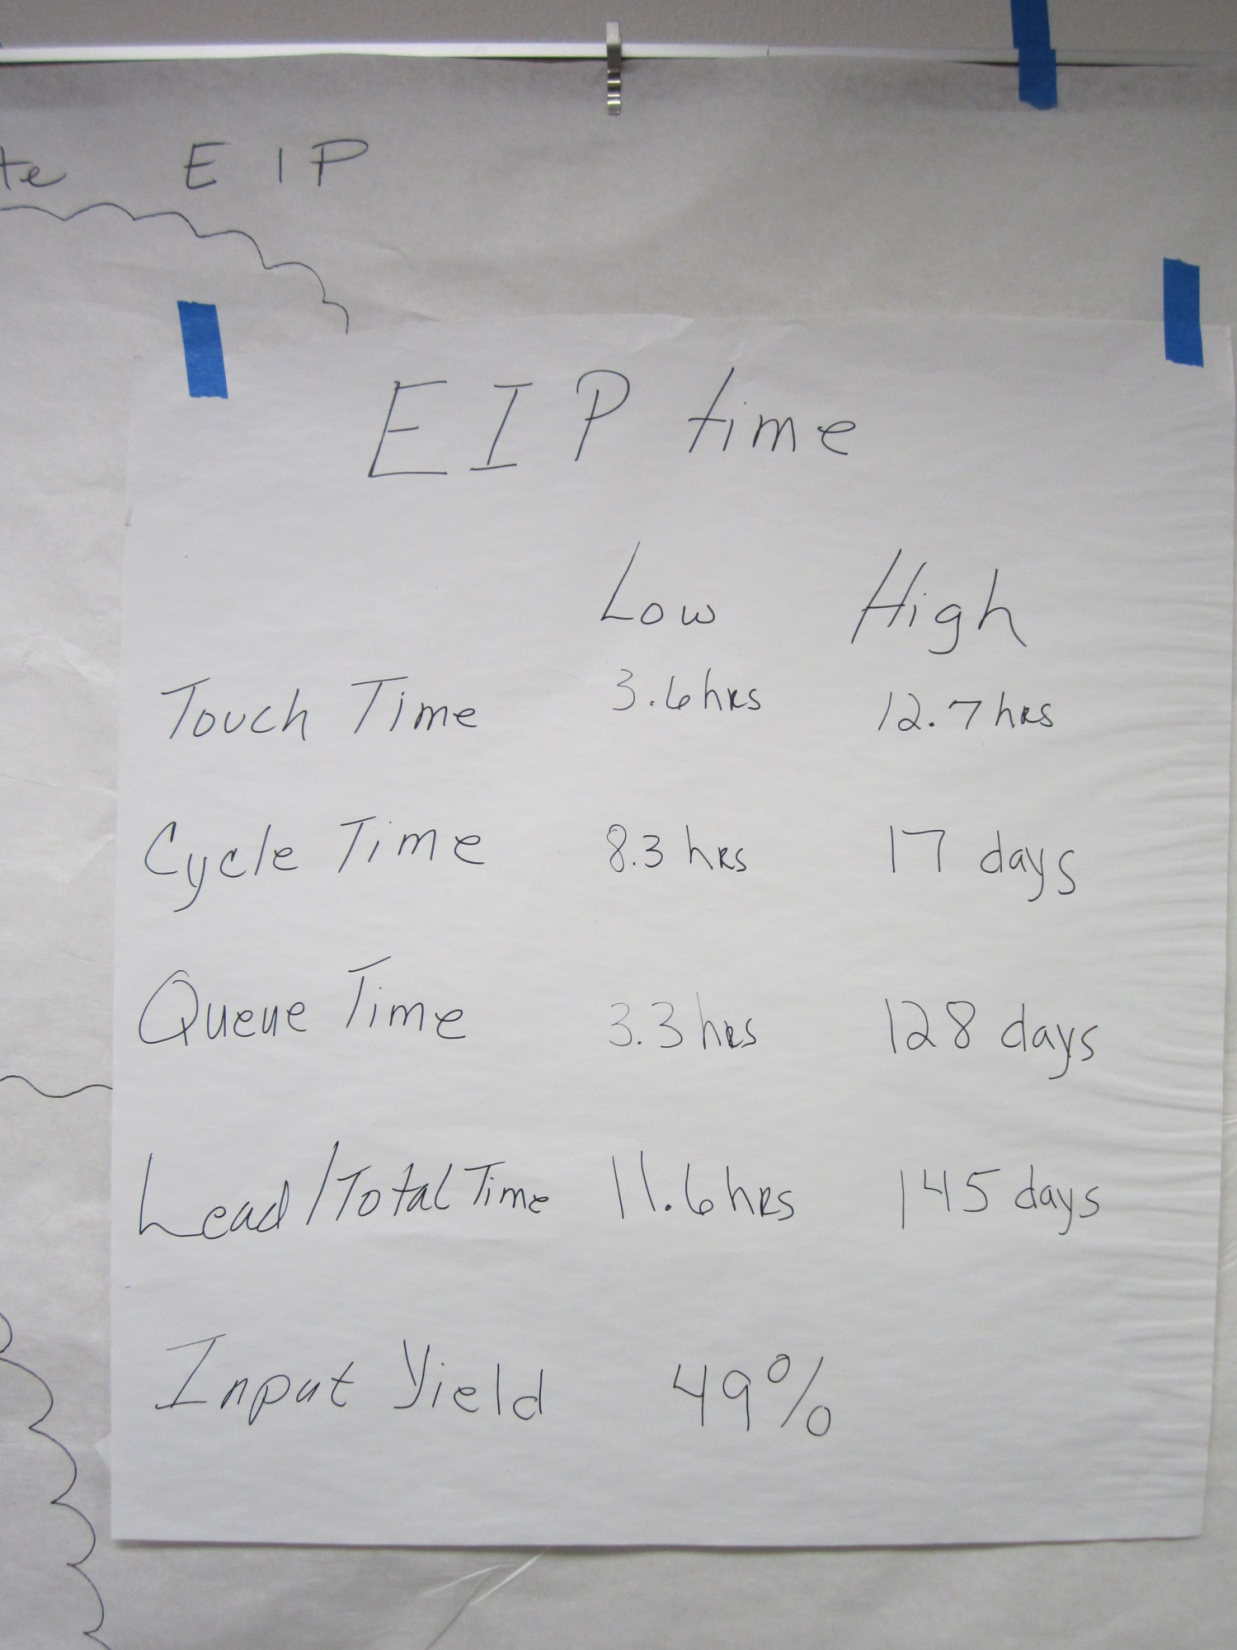 EIP
EIP time
Low High
Touch Time 3.6 hrs 12.7 hrs
Cycle Time 8.3 hrs 17 days
Queue Time 3.3 hrs 128 days
Lead/Total Time 11.6 hrs 145 days
Input Yield 49%